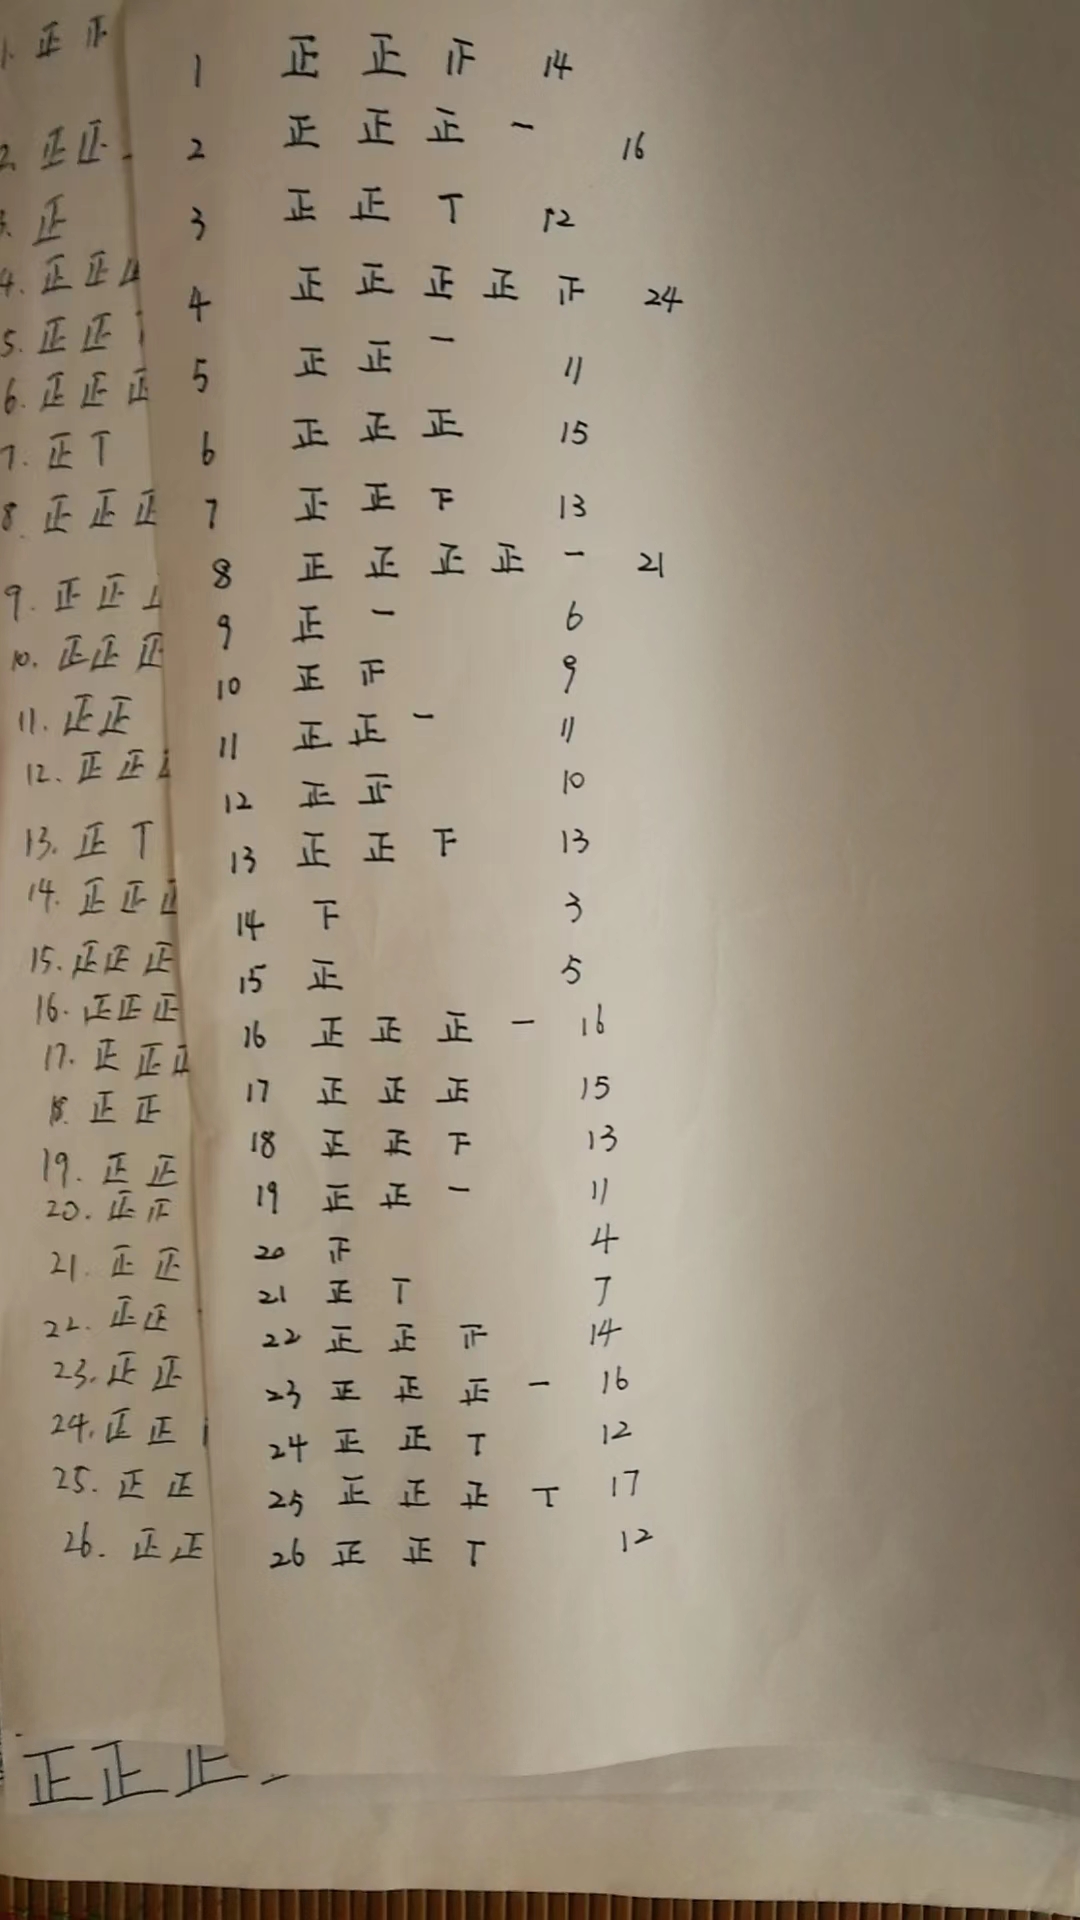 1. 正 正
2. 正 正
3. 正
4. 正 正
5. 正 正
6. 正 正 正
7. 正 丅
8. 正 正 正
9. 正 正
10. 正 正 正
11. 正 正
12. 正 正
13. 正 丅
14. 正 正
15. 正 正 正
16. 正 正 正
17. 正 正
18. 正 正
19. 正 正
20. 正
21. 正 正
22. 正 正
23. 正 正
24. 正 正
25. 正 正
26. 正 正
正 正 正
1 正 正 𝍵 14
2 正 正 正 一 16
3 正 正 丅 12
4 正 正 正 正 𝍵 24
5 正 正 一 11
6 正 正 正 15
7 正 正 下 13
8 正 正 正 正 一 21
9 正 一 6
10 正 𝍵 9
11 正 正 一 11
12 正 正 10
13 正 正 下 13
14 下 3
15 正 5
16 正 正 正 一 16
17 正 正 正 15
18 正 正 下 13
19 正 正 一 11
20 𝍵 4
21 正 丅 7
22 正 正 𝍵 14
23 正 正 正 一 16
24 正 正 丅 12
25 正 正 正 丅 17
26 正 正 丅 12